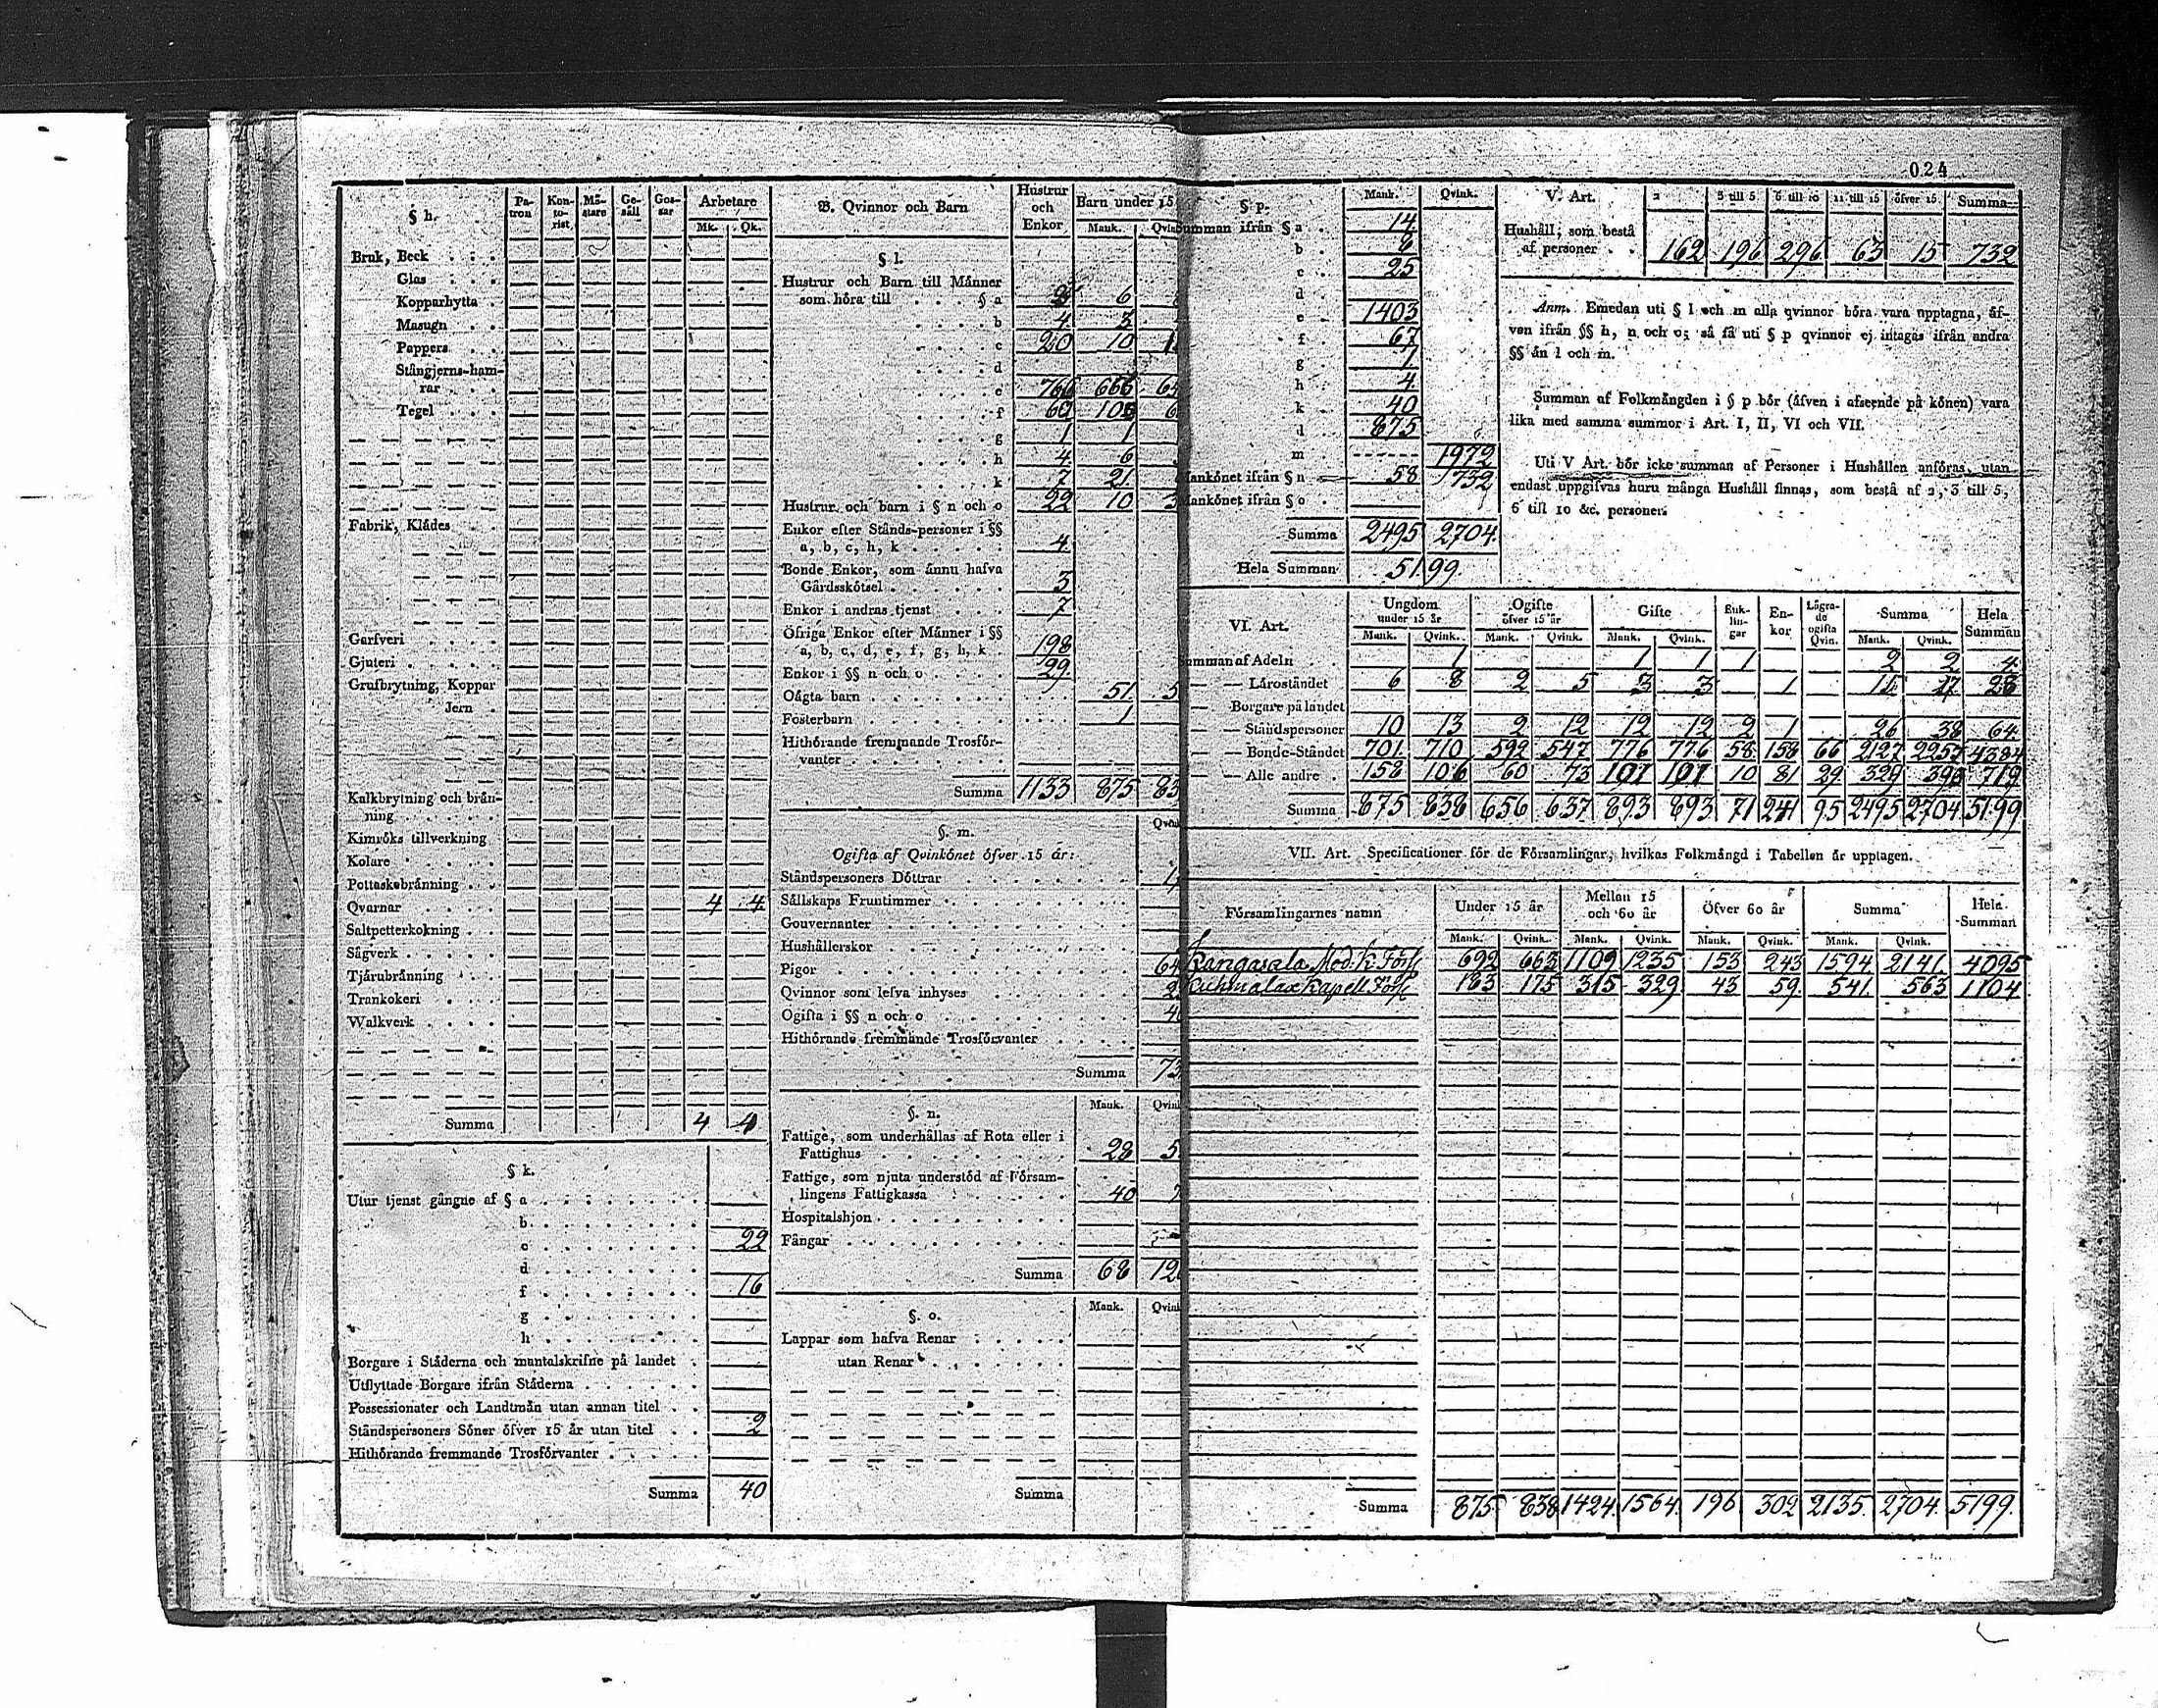 024
§ h.
Patron
Kontorist
Mästare
Gesäll
Gossar
Arbetare
Mk. Qk.
Bruk, Beck
Glas
Kopparhytta
Masugn
Pappers
Stångjerns-hamrar
Tegel
Fabrik, Klädes
Garfveri
Gjuteri
Grufbrytning, Koppar
Jern
Kalkbrytning och bränning
Kimröks tillverkning
Kolare
Pottaskebränning
Qvarnar 4 4
Saltpetterkokning
Sågverk
Tjärubränning
Trankokeri
Walkverk
Summa 4 4
§ k.
Utur tjenst gångne af § a
b
c 22
d
f 16
g
h
Borgare i Städerna och mantalskrifne på landet
Utflyttade Borgare ifrån Städerna
Possessionater och Landtmän utan annan titel
Ståndspersoners Söner öfver 15 år utan titel 2
Hithörande fremmande Trosförvanter
Summa 40
B. Qvinnor och Barn
Hustrur och Enkor
Barn under 15
Mank.
§ l.
Hustrur och Barn till Männer
som höra till § a 6
b 4 3
c 20 10
d
e 766 666
f 60
g 1 1
h 4 6
k 7 21
Hustrur och barn i § n och o 22 10
Enkor efter Stånds-personer i §§
a, b, c, h, k 4
Bonde Enkor, som ännu hafva
Gårdsskötsel 3
Enkor i andras tjenst 7
Öfriga Enkor efter Männer i §§
a, b, c, d, e, f, g, h, k 198
Enkor i §§ n och o 29
Oägta barn 51
Fosterbarn 1
Hithörande fremmande Trosförvanter
Summa 1133 875
§. m.
Ogifta af Qvinkönet öfver 15 år:
Ståndspersoners Döttrar
Sällskaps Fruntimmer
Gouvernanter
Hushållerskor
Pigor
Qvinnor som lefva inhyses
Ogifta i §§ n och o
Hithörande fremmande Trosförvanter
Summa
§. n.
Mank.
Fattige, som underhållas af Rota eller i
Fattighus 28
Fattige, som njuta understöd af Församlingens Fattigkassa 40
Hospitalshjon
Fångar
Summa 68
§. o.
Mank.
Lappar som hafva Renar
utan Renar
Summa
§ p.
Mank. Qvink.
Summan ifrån § a 14
b 8
c 25
d
e 1403
f 67
g 1
h 4
k 40
d 875
m 1972
Mankönet ifrån § n 58 732
Mankönet ifrån § o
Summa 2495 2704
Hela Summan 5199
V. Art.
2 3 till 5 6 till 10 11 till 15 öfver 15 Summa
Hushåll, som bestå
af personer 162 196 296 63 15 732
Anm. Emedan uti § l och m alla qvinnor böra vara upptagna, äfven ifrån §§ h, n och o; så få uti § p qvinnor ej intagas ifrån andra
§§ än l och m.
Summan af Folkmängden i § p bör (äfven i afseende på könen) vara
lika med samma summor i Art. I, II, VI och VII.
Uti V Art. bör icke summan af Personer i Hushållen anföras, utan
endast uppgifvas huru många Hushåll finnas, som bestå af 2, 3 till 5,
6 till 10 &c. personer.
VI. Art.
Ungdom under 15 år
Ogifte öfver 15 år
Gifte
Enklingar
Enkor
Lägrade ogifta Qvin.
Summa
Hela Summan
Mank. Qvink. Mank. Qvink. Mank. Qvink. Mank. Qvink.
Summan af Adeln 1 1 1 1 2 2 4
Läroståndet 6 8 2 5 3 3 1 11 17 28
Borgare på landet
Ståndspersoner 10 13 2 12 12 12 2 1 26 38 64
Bonde-Ståndet 701 710 592 547 776 776 58 158 66 2127 2257 4384
Alle andre 158 106 60 73 101 101 10 81 29 329 390 719
Summa 875 838 656 637 893 893 71 241 95 2495 2704 5199
VII. Art. Specificationer för de Församlingar, hvilkas Folkmängd i Tabellen är upptagen.
Församlingarnes namn
Under 15 år
Mellan 15 och 60 år
Öfver 60 år
Summa
Hela Summan
Mank. Qvink. Mank. Qvink. Mank. Qvink. Mank. Qvink.
Kangasala Mod. K. Förs. 692 663 1109 1235 153 243 1594 2141 4095
Kuhmalax Kapell Förs. 183 175 315 329 43 59 541 563 1104
Summa 875 838 1424 1564 196 302 2135 2704 5199